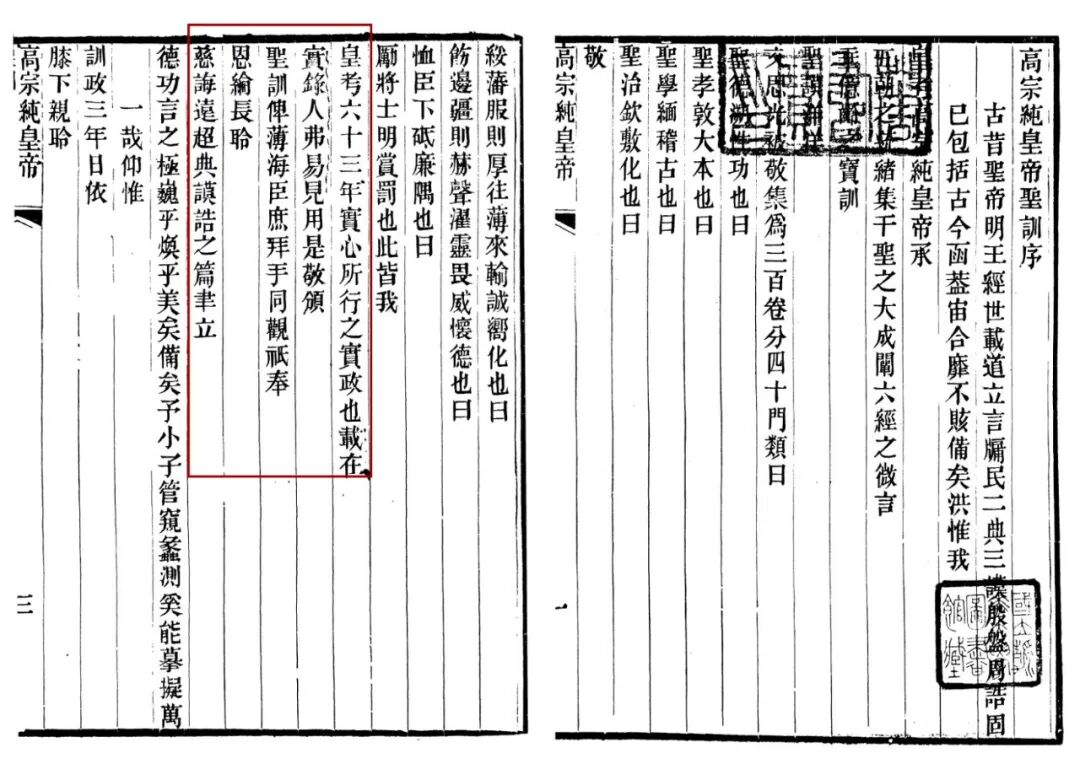 高宗純皇帝聖訓序
古昔聖帝明王經世載道立言牖民二典三謨殷盤周誥固
已包括古今函蓋宙合靡不賅備矣洪惟我
皇考高宗純皇帝承
五朝之統緒集千聖之大成闡六經之微言
垂億 之寶訓
聖謨洋洋
文思光被敬集爲三百卷分四十門類曰
聖德 性功也曰
聖孝敦大本也曰
聖學緬稽古也曰
聖治欽敷化也曰
敬
高宗純皇帝
一
綏藩服則厚往薄來輸誠嚮化也曰
飭邊疆則赫聲濯靈畏威懷德也曰
恤臣下砥廉隅也曰
勵將士明賞罰也此皆我
皇考六十三年實心所行之實政也載在
實錄人弗易見用是敬頒
聖訓俾薄海臣庶拜手同觀祇奉
恩綸長聆
慈誨遠超典謨誥之篇聿立
德功言之極巍乎煥乎美矣備矣予小子管窺蠡測奚能摹擬萬
一哉仰惟
訓政三年日依
膝下親聆
高宗純皇帝
三